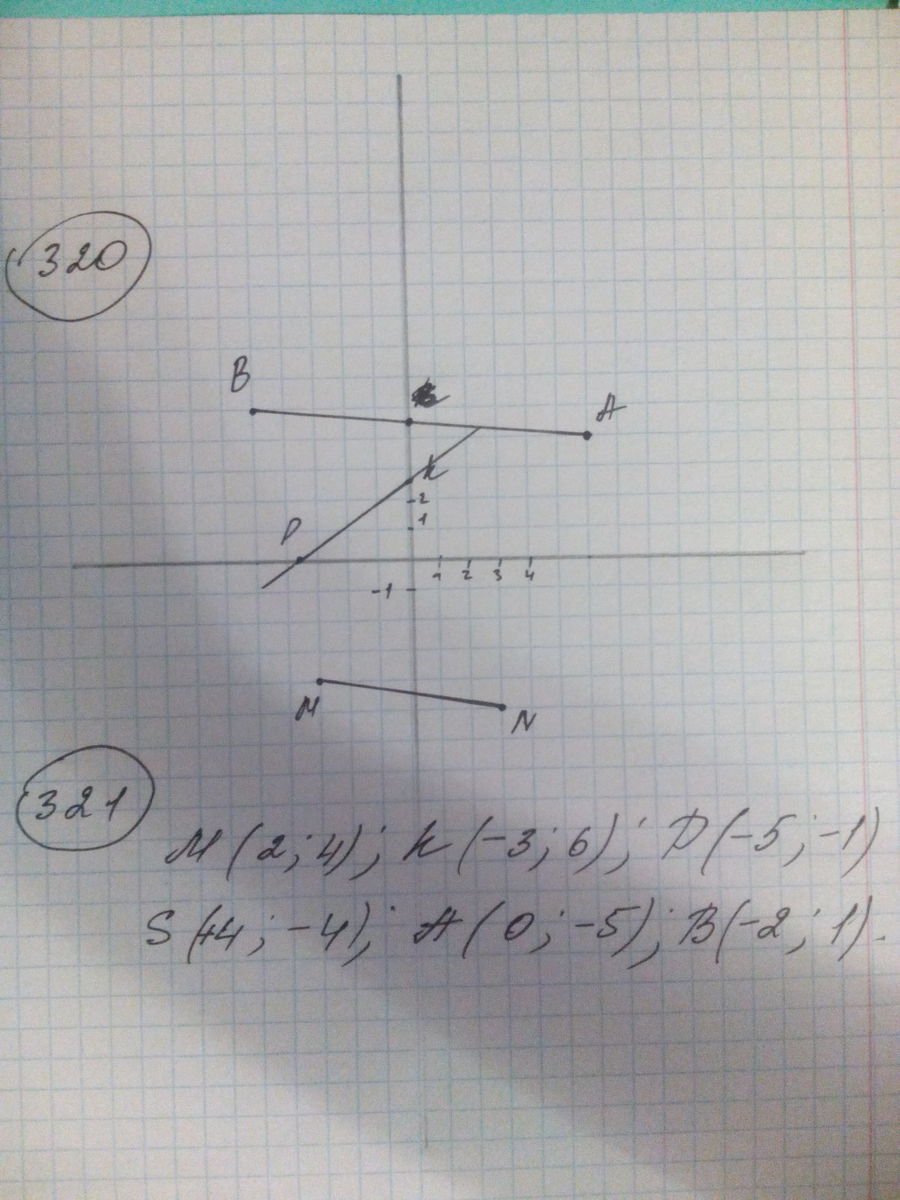 320
B
A
K
2
P
1
1 2 3 4
-1
M
N
321
M (2; 4); K (-3; 6); P (-5; -1)
S (+4; -4); A (0; -5); B (-2; 1).